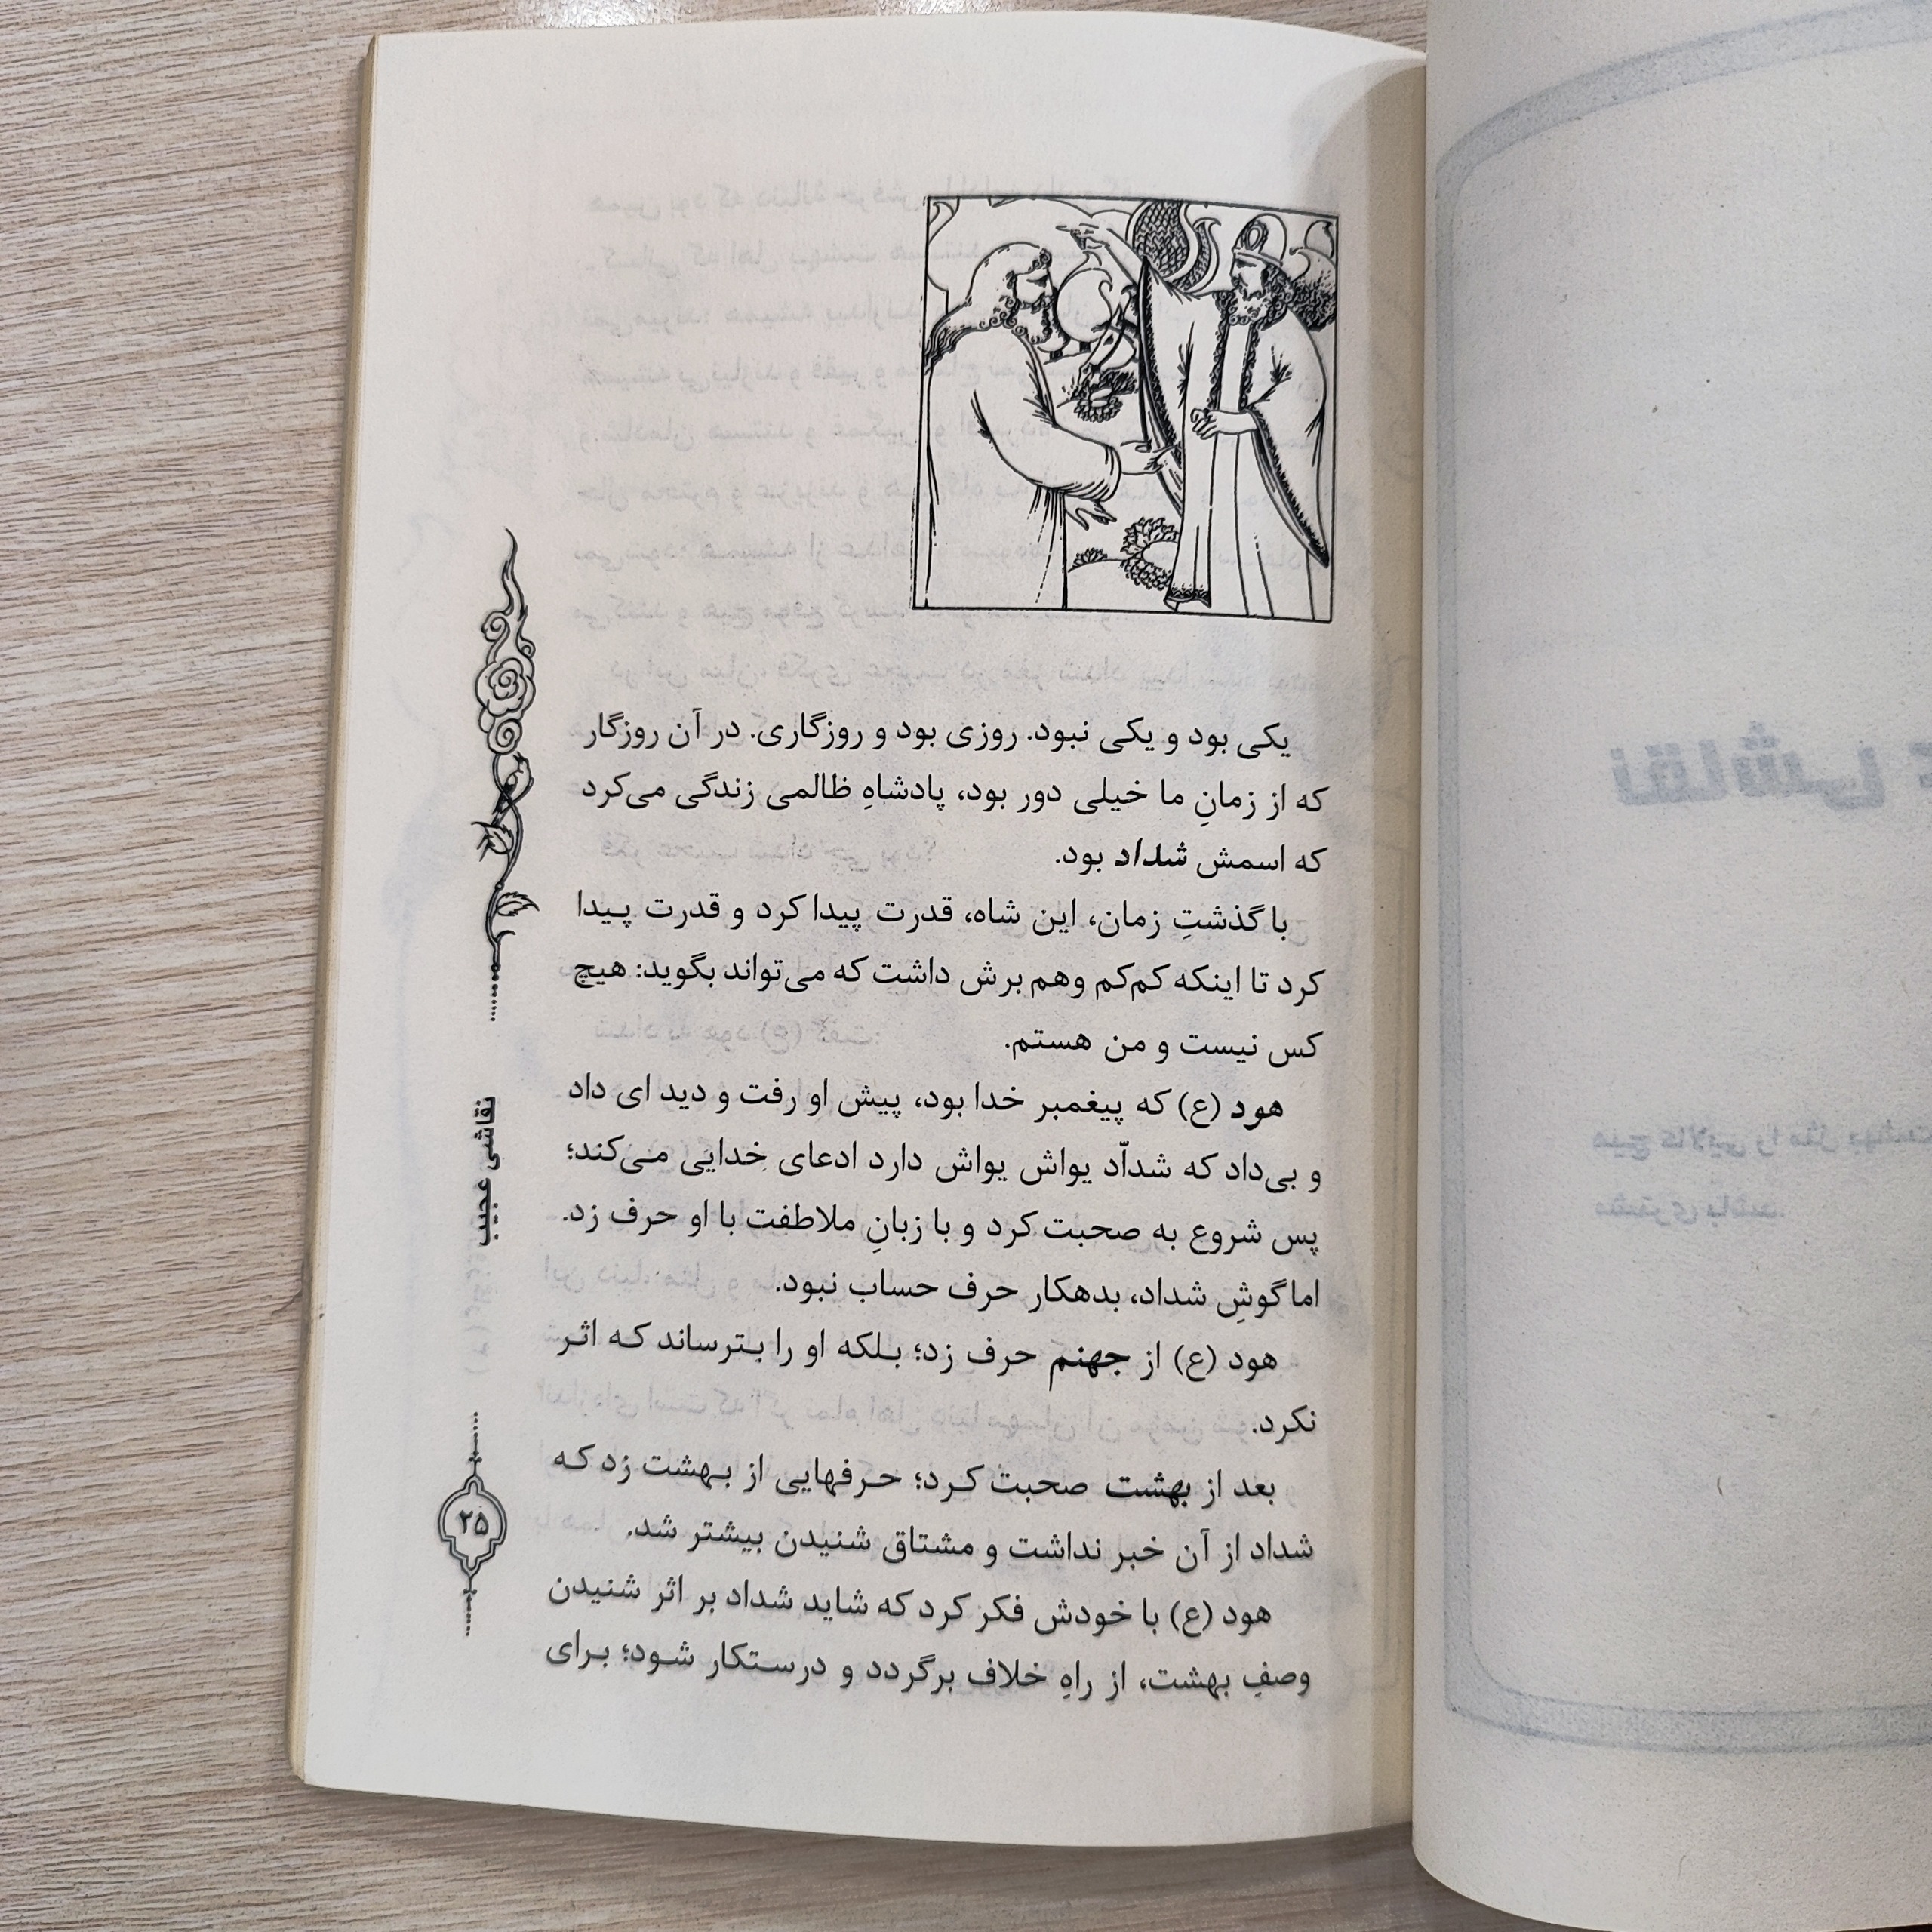 یکی بود و یکی نبود. روزی بود و روزگاری. در آن روزگار
که از زمانِ ما خیلی دور بود، پادشاهِ ظالمی زندگی می‌کرد
که اسمش شداد بود.
با گذشتِ زمان، این شاه، قدرت پیدا کرد و قدرت پیدا
کرد تا اینکه کم‌کم وهم برش داشت که می‌تواند بگوید: هیچ
کس نیست و من هستم.
هود (ع) که پیغمبر خدا بود، پیش او رفت و دید ای داد
و بی‌داد که شداّد یواش یواش دارد ادعای خدایی می‌کند؛
پس شروع به صحبت کرد و با زبانِ ملاطفت با او حرف زد.
اما گوشِ شداد، بدهکار حرف حساب نبود.
هود (ع) از جهنم حرف زد؛ بلکه او را بترساند که اثر
نکرد.
بعد از بهشت صحبت کرد؛ حرفهایی از بهشت زد که
شداد از آن خبر نداشت و مشتاق شنیدن بیشتر شد.
هود (ع) با خودش فکر کرد که شاید شداد بر اثر شنیدن
وصفِ بهشت، از راهِ خلاف برگردد و درستکار شود؛ برای
نقاشی عجیب
۲۵